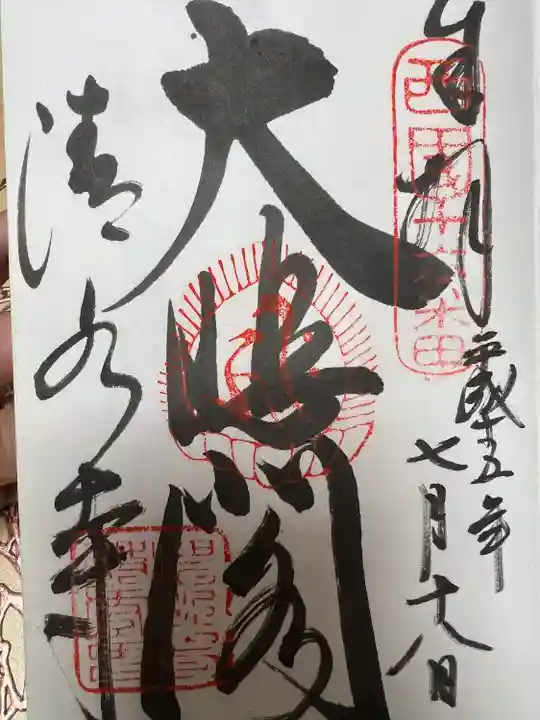 奉拝
西国十六番
平成十五年
七月十八日
大悲閣
清水寺